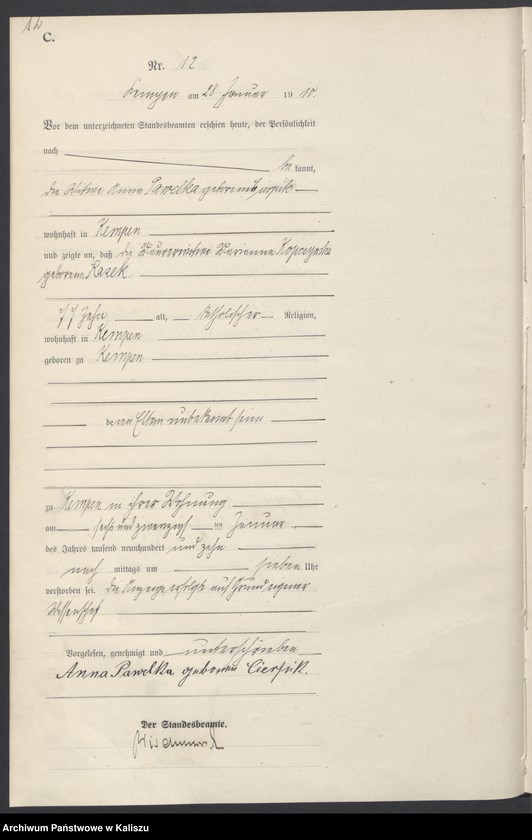 12
C.
Nr. 12
Kempen am 28 Januar 19 10.
Vor dem unterzeichneten Standesbeamten erschien heute, der Persönlichkeit
nach
be kannt,
die Witwe Anna Pawelka geborene Cierpik
wohnhaft in Kempen
und zeigte an, daß die Marianna
geborene Kazek
77 Jahr alt, katholischer Religion,
wohnhaft in Kempen
geboren zu Kempen
deren Eltern unbekannt sein
zu Kempen in ihrer Wohnung
am sechs und zwanzigst en Januar
des Jahres tausend neunhundert und zehn
nach mittags um sieben Uhr
verstorben sei. Die Anzeige erfolgt auf Grund eigener
Wissenschaft
Vorgelesen, genehmigt und unterschrieben
Anna Pawelka geborene Cierpik.
Der Standesbeamte.
Archiwum Państwowe w Kaliszu